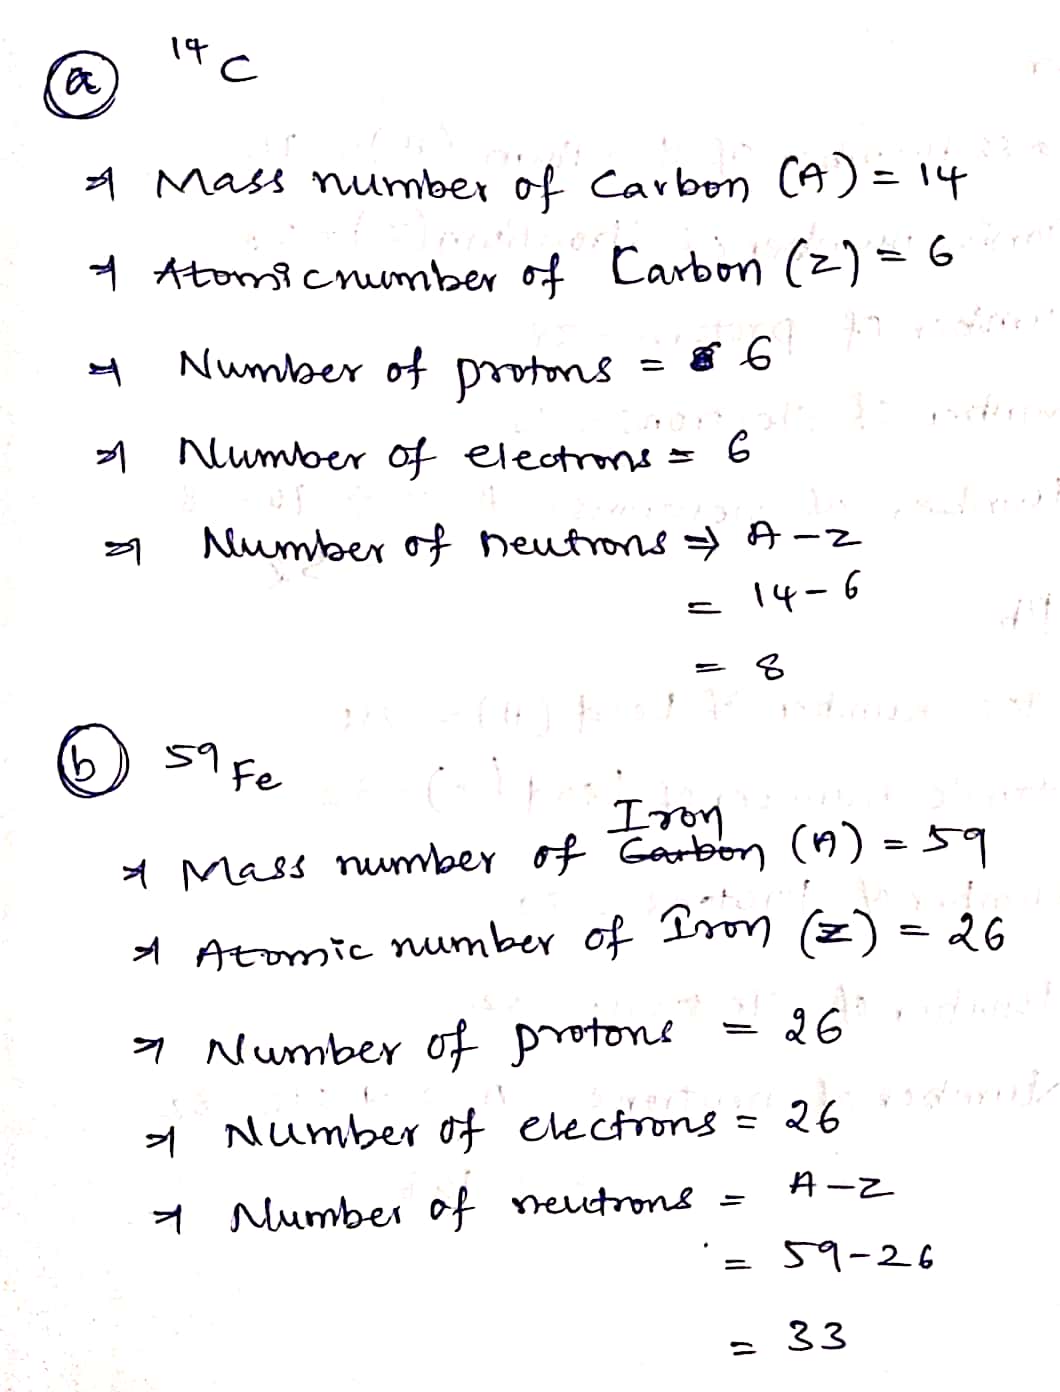 (a) ¹⁴C
⇒ Mass number of Carbon (A) = 14
⇒ Atomic number of Carbon (Z) = 6
⇒ Number of protons = 6
⇒ Number of electrons = 6
⇒ Number of neutrons ⇒ A-Z
= 14-6
= 8
(b) ⁵⁹Fe
Iron
⇒ Mass number of Carbon (A) = 59
⇒ Atomic number of Iron (Z) = 26
⇒ Number of protons = 26
⇒ Number of electrons = 26
⇒ Number of neutrons = A-Z
= 59-26
= 33